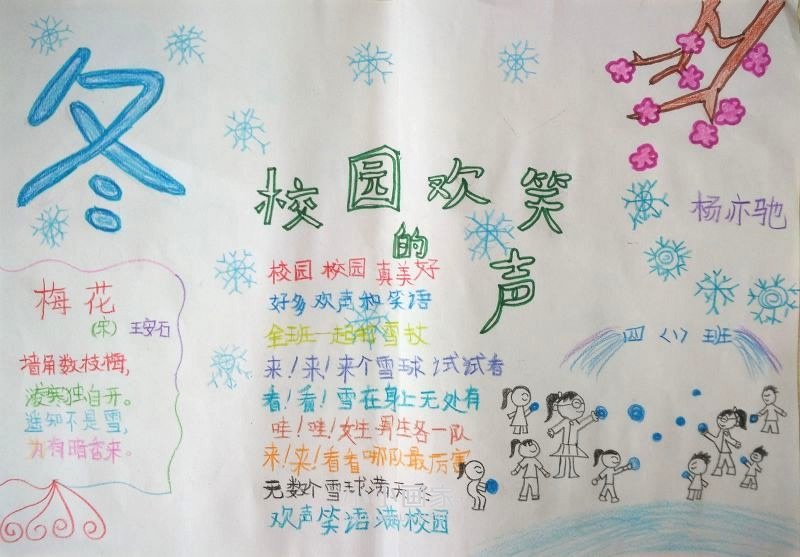 冬
校园欢笑
的
声
杨亦驰
四(八)班
梅花
(宋) 王安石
墙角数枝梅,
凌寒独自开。
遥知不是雪,
为有暗香来。
校园 校园 真美好
好多欢声和笑语
全班一起打雪仗
来!来!来个雪球试试看
看!看!雪在身上无处有
哇!哇!女生男生各一队
来!来!看看哪队最厉害
无数个雪球满天飞
欢声笑语满校园